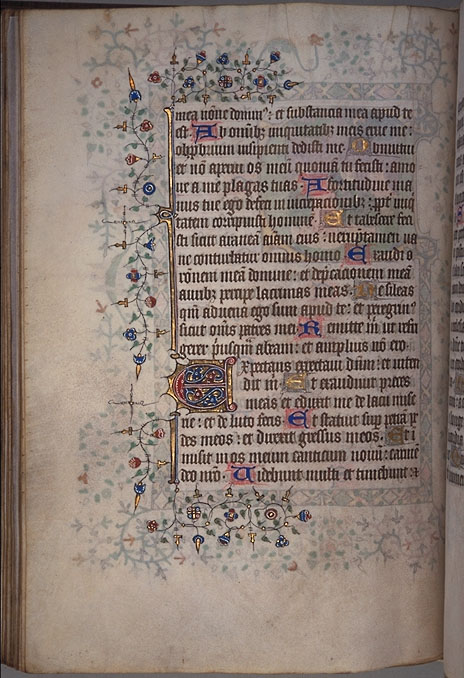 mea nõne dominꝰ: et substancia mea apud te
est A b omĩbꝫ iniquitatibꝫ meis erue me:
obprobrium insipienti dedisti me. O bmutui
et nõ aperui os meũ quoniã tu fecisti: amo
ue a me plagas tuas A fortitudine ma
nus tue ego defeci in increpacionibꝫ: ꝓpter iniq̃
tatem corripuisti hominẽ. E t tabescere feci
sti sicut aranea aĩam eius: uerũptamen ua
ne conturbatur omnis homo E xaudi o
rõnem meã domine: et dep̃cacionem meã
auribꝫ percipe lacrimas meas. N e sileas
qm̃ aduena ego sum apud te: et peregrinꝰ
sicut om̃s patres mei R emitte m̃ ut refri
gerer priusq̃m abeam: et amplius nõ ero.
E xpectans expectaui dñm: et inten
dit m̃ E t exaudiuit preces
meas et eduxit me de lacu mise
rie: et de luto fecis E t statuit sup̃ petrã pe
des meos: et direxit gressus meos. E t i
misit in os meum canticum nouũ: carmẽ
deo nr̃o. U idebunt multi et timebunt: ⁊